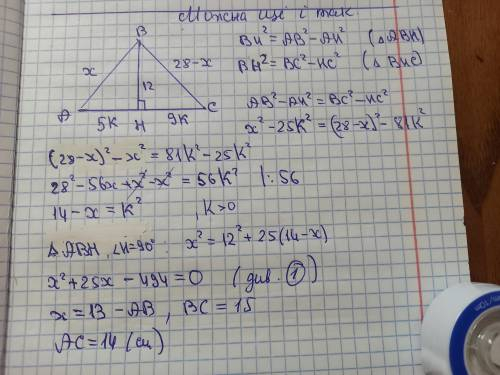 Можна ще і так
B
x
28-x
12
A
C
5K
H
9K
BH² = AB² - AH² (△ABH)
BH² = BC² - HC² (△BHC)
AB² - AH² = BC² - HC²
x² - 25K² = (28-x)² - 81K²
(28-x)² - x² = 81K² - 25K²
28² - 56x + x² - x² = 56K² |:56
14 - x = K² , K>0
△ABH, ∠H=90° : x² = 12² + 25(14-x)
x² + 25x - 494 = 0 (див. ①)
x = 13 - AB, BC = 15
AC = 14 (см)